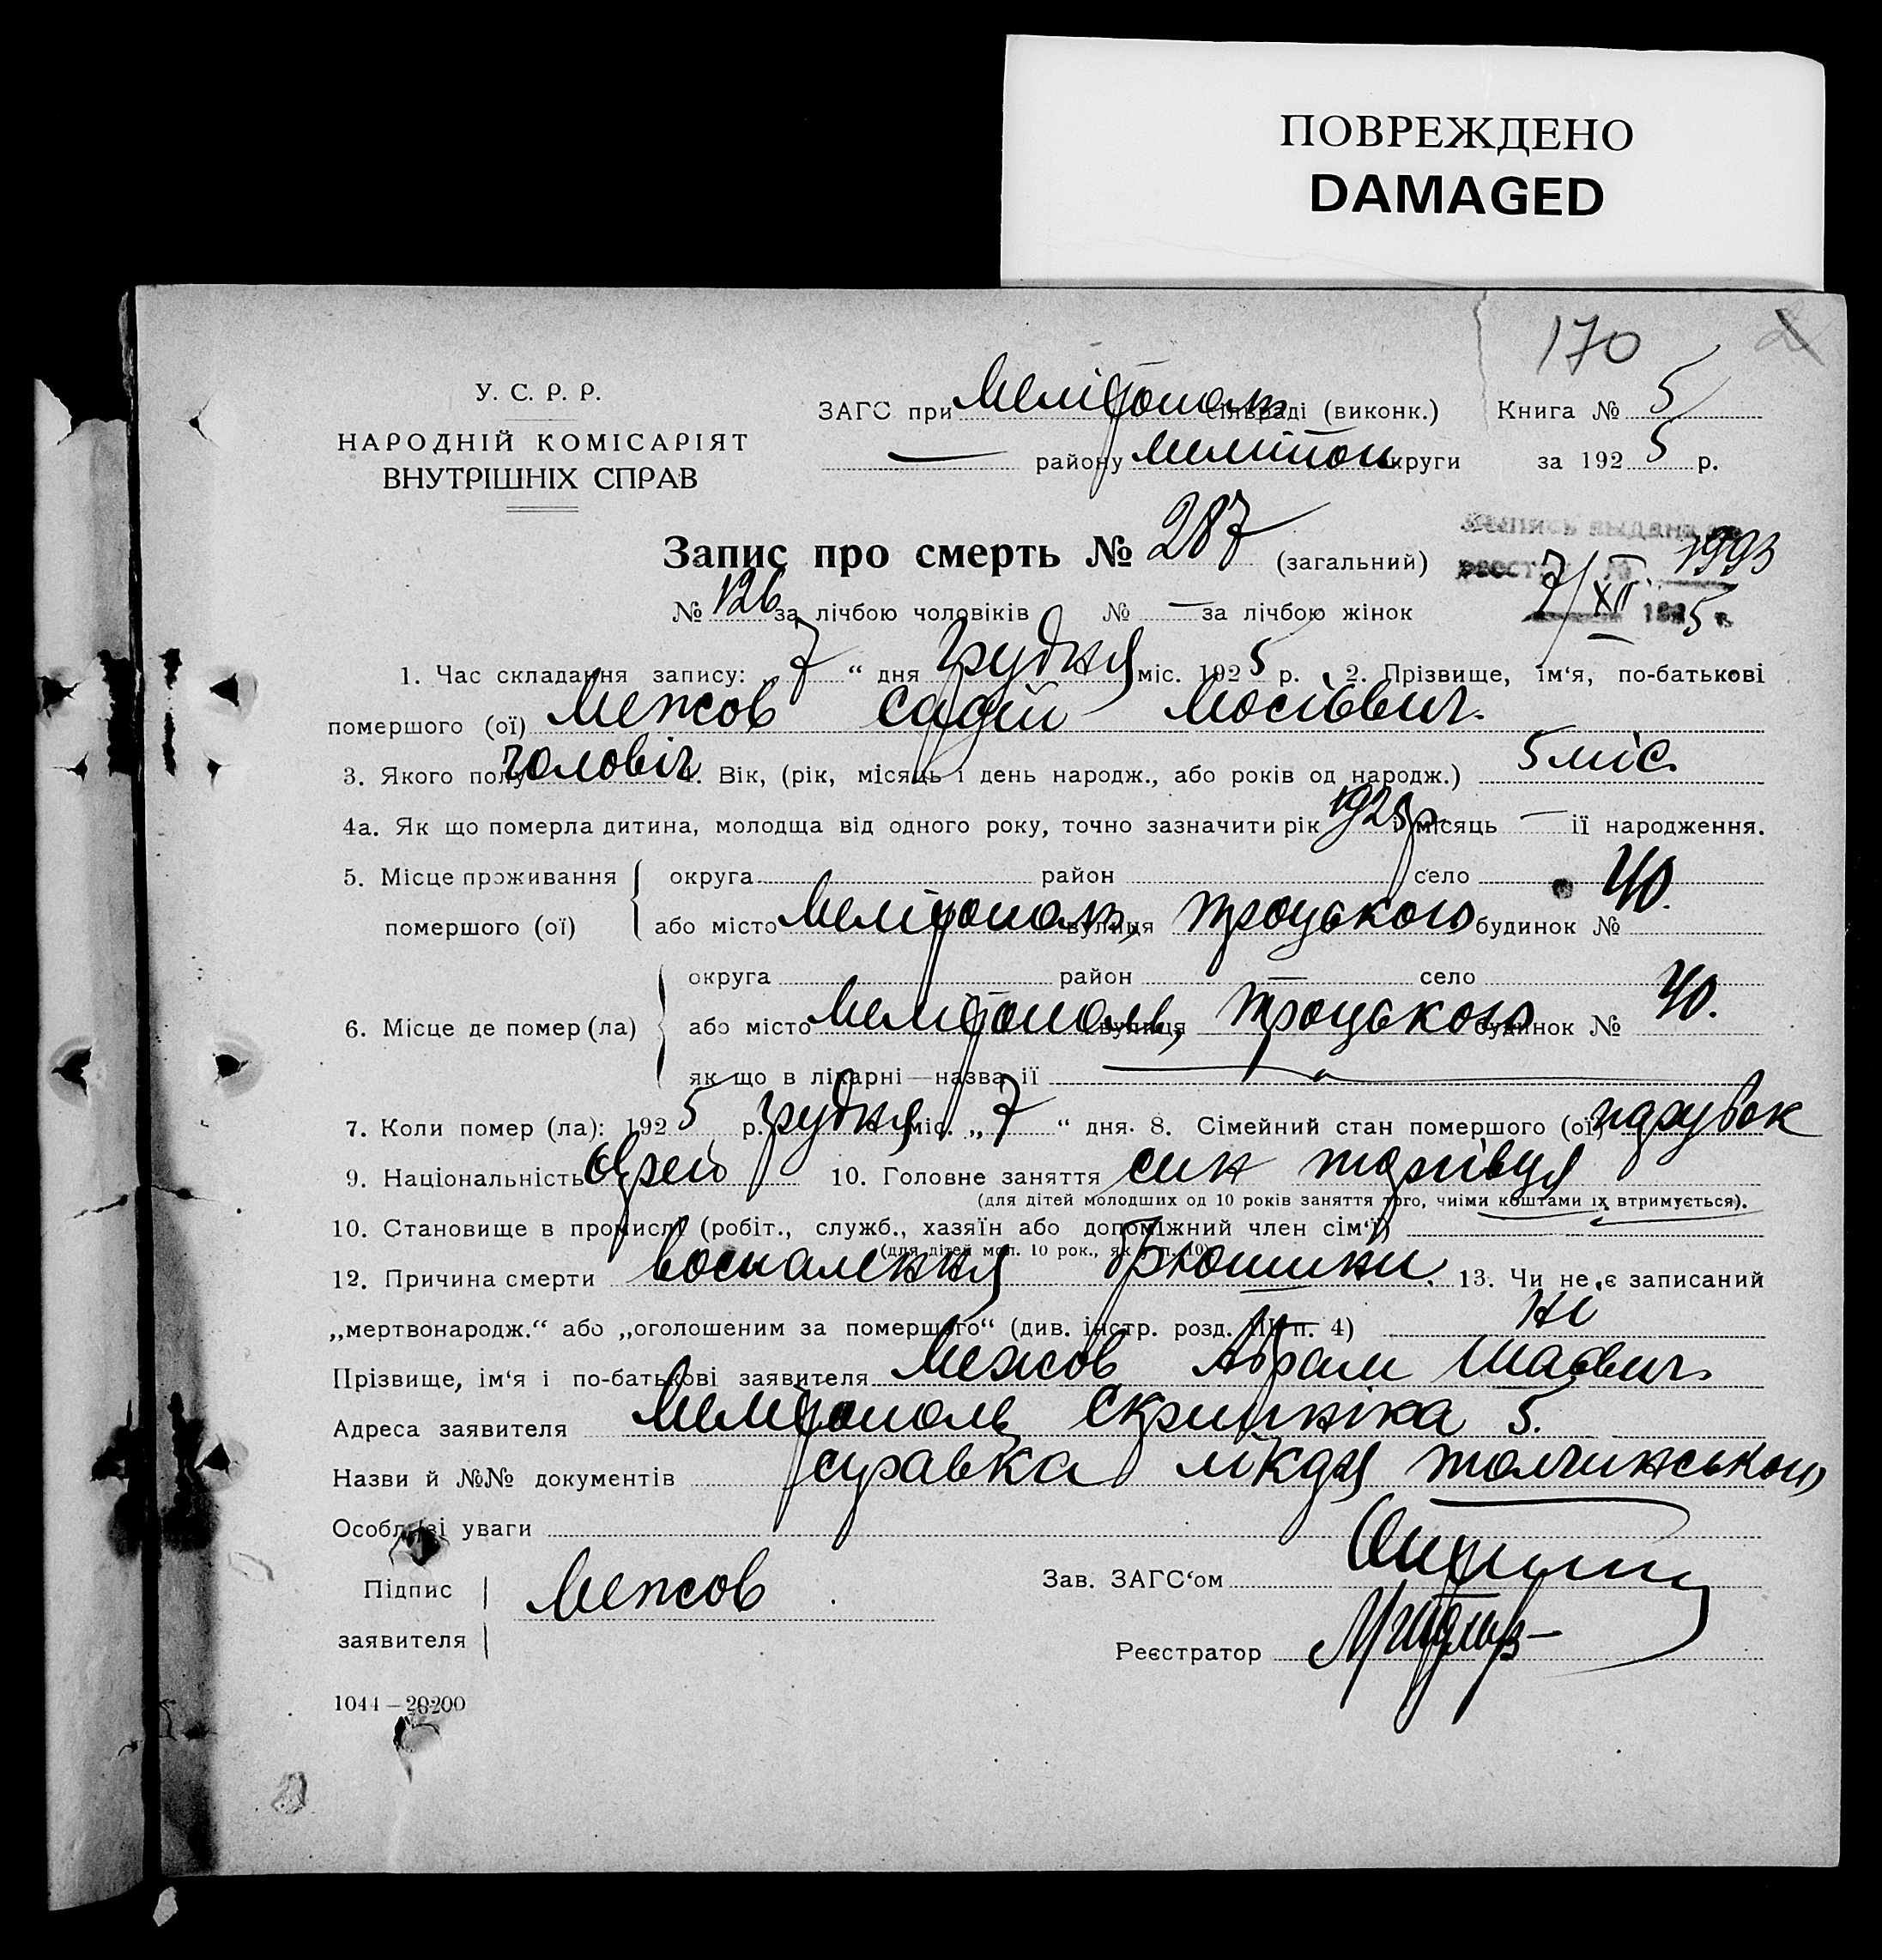 ПОВРЕЖДЕНО
DAMAGED
170
У. С. Р. Р.
НАРОДНІЙ КОМІСАРІЯТ
ВНУТРІШНІХ СПРАВ
ЗАГС при Мелітополь сільраді (виконк.) Книга № 5
— району Мелітоп округи за 192 5 р.
Запис про смерть № 287 (загальний)
Выпись выдана
реестр № 1993
7/XII 1925 г.
№ 126 за лічбою чоловіків № — за лічбою жінок
1. Час складання запису: 7 “ дня грудня міс. 192 5 р. 2. Прізвище, ім‘я, по-батькові
помершого (ої) Межов Садій Мосійович.
3. Якого полу чоловіч 4. Вік, (рік, місяць і день народж., або років од народж.) 5 міс.
4а. Як що померла дитина, молодща від одного року, точно зазначити рік 1925 р і місяць — її народження.
5. Місце проживання округа район село
помершого (ої) або місто Мелітополь, вулиця Троцького будинок № 40.
округа район — село
6. Місце де помер (ла) або місто Мелітополь, вулиця Троцького будинок № 40.
як що в лікарні — назва її
7. Коли помер (ла): 192 5 р. грудня міс. „ 7 “ дня. 8. Сімейний стан помершого (ої) парубок
9. Національність єврей 10. Головне заняття син торгівця
(для дітей молодших од 10 років заняття того, чиіми коштами їх втримується).
10. Становище в промислі (робіт., служб., хазяїн або допоміжний член сім‘ї)
(для дітей мол. 10 рок., як у п. 10)
12. Причина смерти воспалення брюшини. 13. Чи не є записаний
„мертвонародж.“ або „оголошеним за померщого“ (див. інстр. розд. III п. 4) ні
Прізвище, ім‘я і по-батькові заявителя Межов Абрам
Адреса заявителя Мелітополь Скрипніка 5.
Назви й №№ документів справка лікаря Толчинського
Особливі уваги
Підпис заявителя Межов
Зав. ЗАГС‘ом
Реєстратор
1044 — 20200